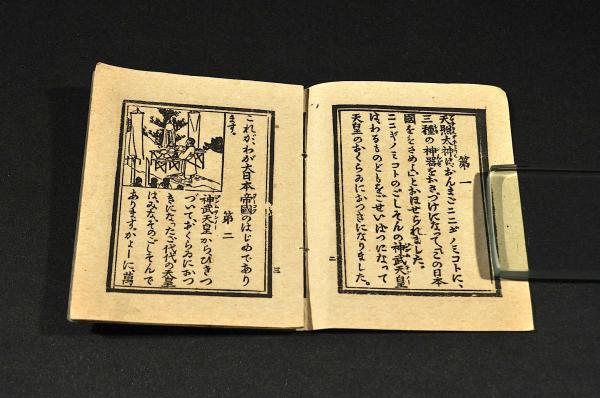 第一
天照大神はおんまごニニギノミコトに、
三種の神器をおさづけになって、この日本
國ををさめよ、とおほせられました。
ニニギノミコトのごしそんの神武天皇
は、わるものどもをごせいばつになって
天皇のおくらゐにおつきになりました。
二
これが、わが大日本帝國のはじめであり
ます。
第二
神武天皇からひきつ
づいておくらゐにおつ
きになった、ご代代の天皇
は、みなそのごしそんで
あります。かように、萬
三